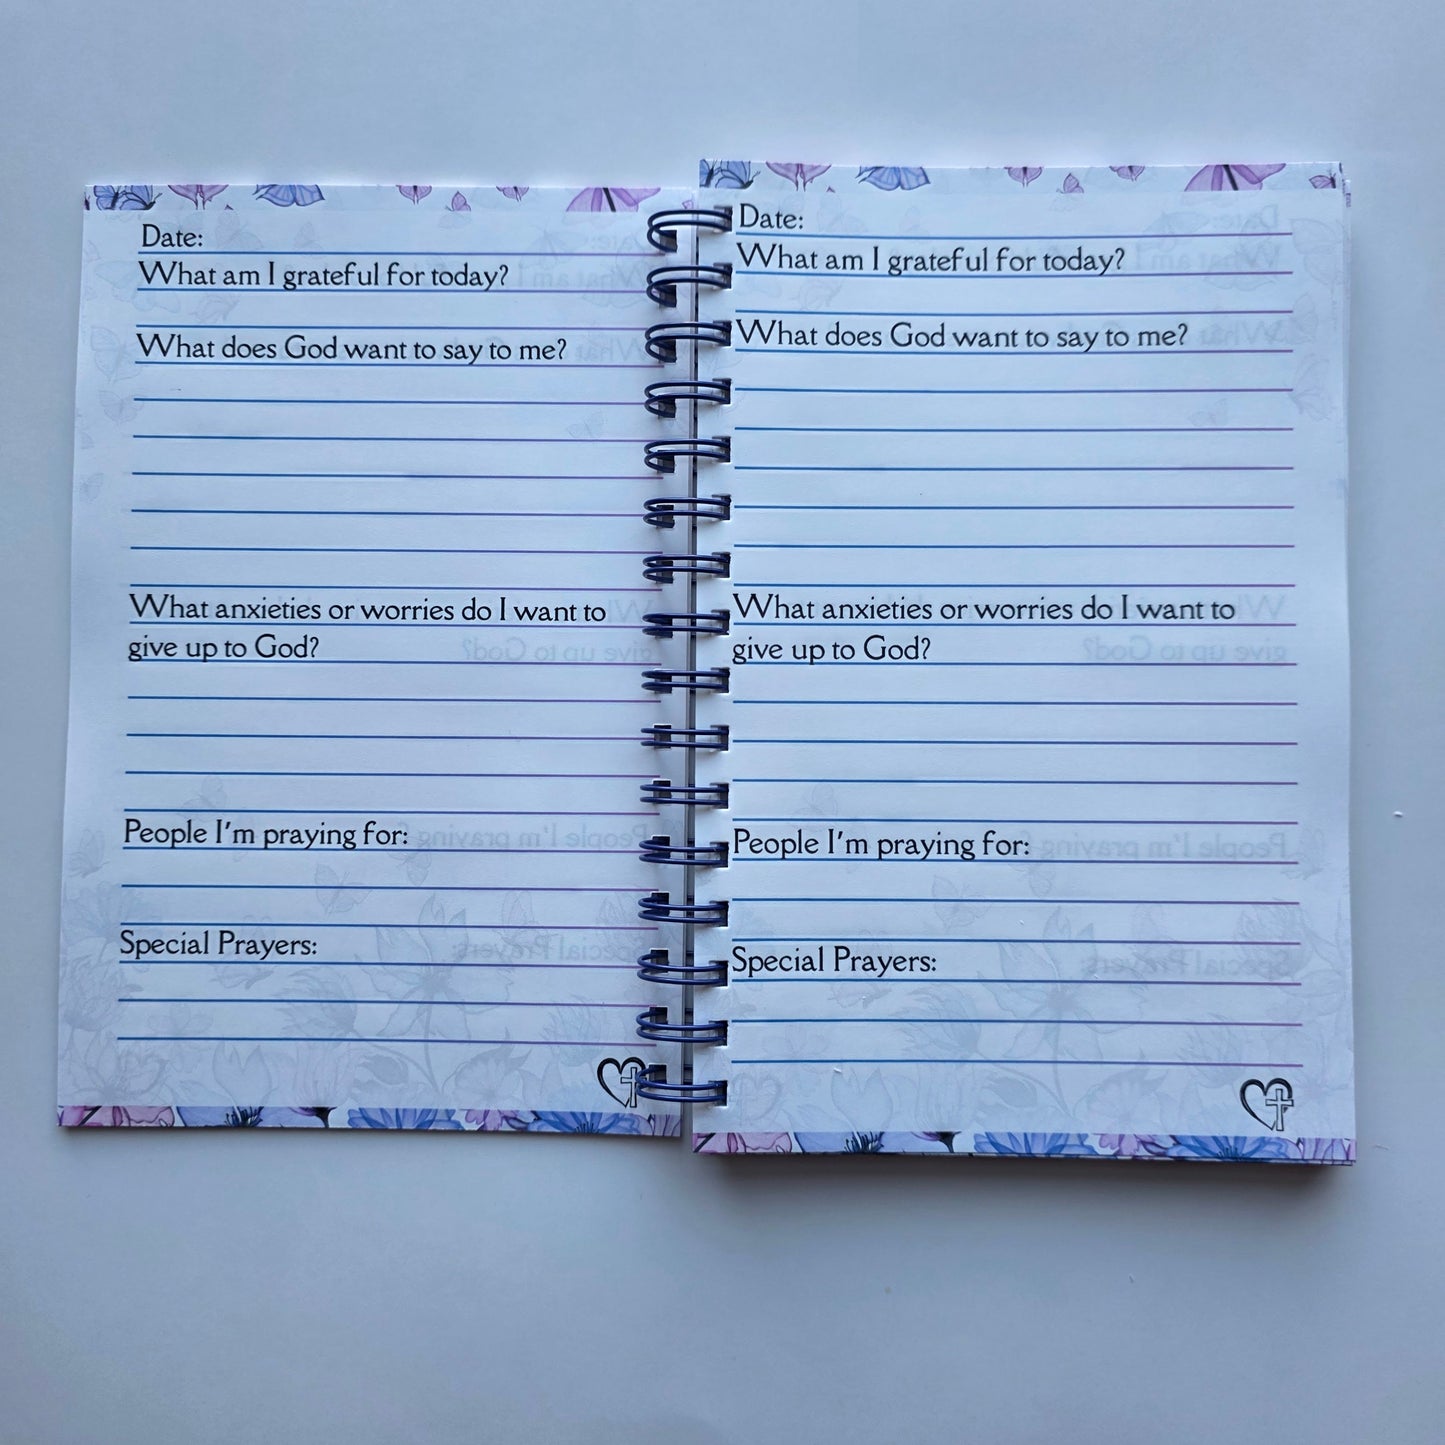 Date:
What am I grateful for today?
What does God want to say to me?
What anxieties or worries do I want to
give up to God?
People I'm praying for:
Special Prayers:
Date:
What am I grateful for today?
What does God want to say to me?
What anxieties or worries do I want to
give up to God?
People I'm praying for:
Special Prayers: